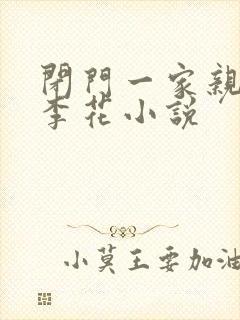 閉門一家親
李花小説
小莫王要加油